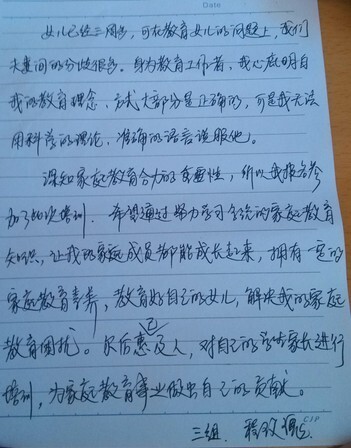 Date
女儿已经三周岁，可在教育女儿的问题上，我们
夫妻间的分歧很多。身为教育工作者，我心底明白
我的教育理念、方式大部分是正确的，可是我无法
用科学的理论、准确的语言说服他。
深知家庭教育合力的重要性，所以我报名参
加了此次培训，希望通过努力学习全统的家庭教育
知识，让我的家庭成员都能成长起来，拥有一定的
家庭教育素养，教育好自己的女儿，解决我的家庭
教育困扰。尔后惠己及人，对自己的学生家长进行
培训，为家庭教育事业做出自己的贡献。
三组 程